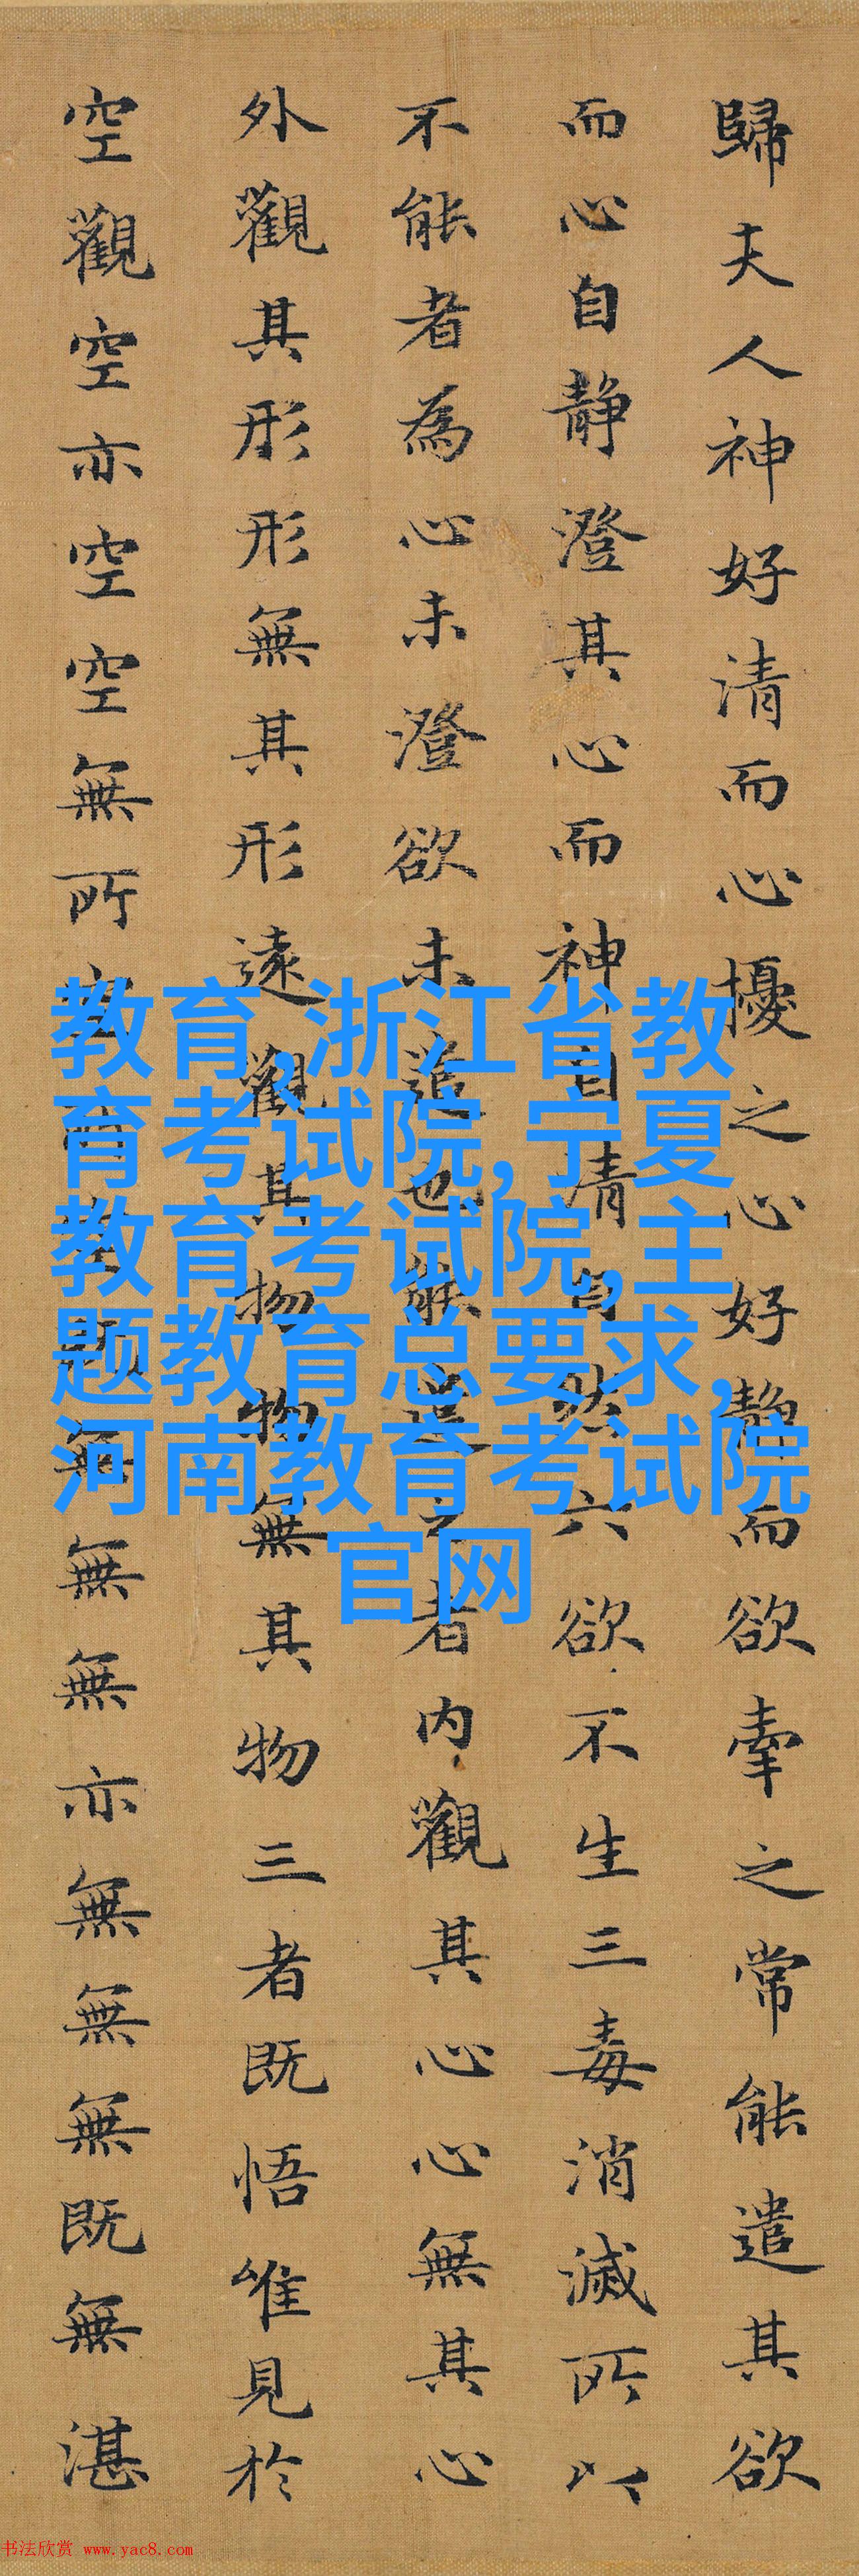 歸夫人神好清而心擾之心好静而欲牽之常能遣其欲
而心自静澄其心而神自清自然六欲不生三毒消滅所以
不能者為心未澄欲未遣也能遣之者内觀其心心無其心
外觀其形形無其形遠觀其物物無其物三者既悟唯見於
空觀空亦空空無所空所空既無無無亦無無無既無湛
教育,浙江省教
育考试院,宁夏
教育考试院,主
题教育总要求,
河南教育考试院
官网
书法欣赏 www.yac8.com